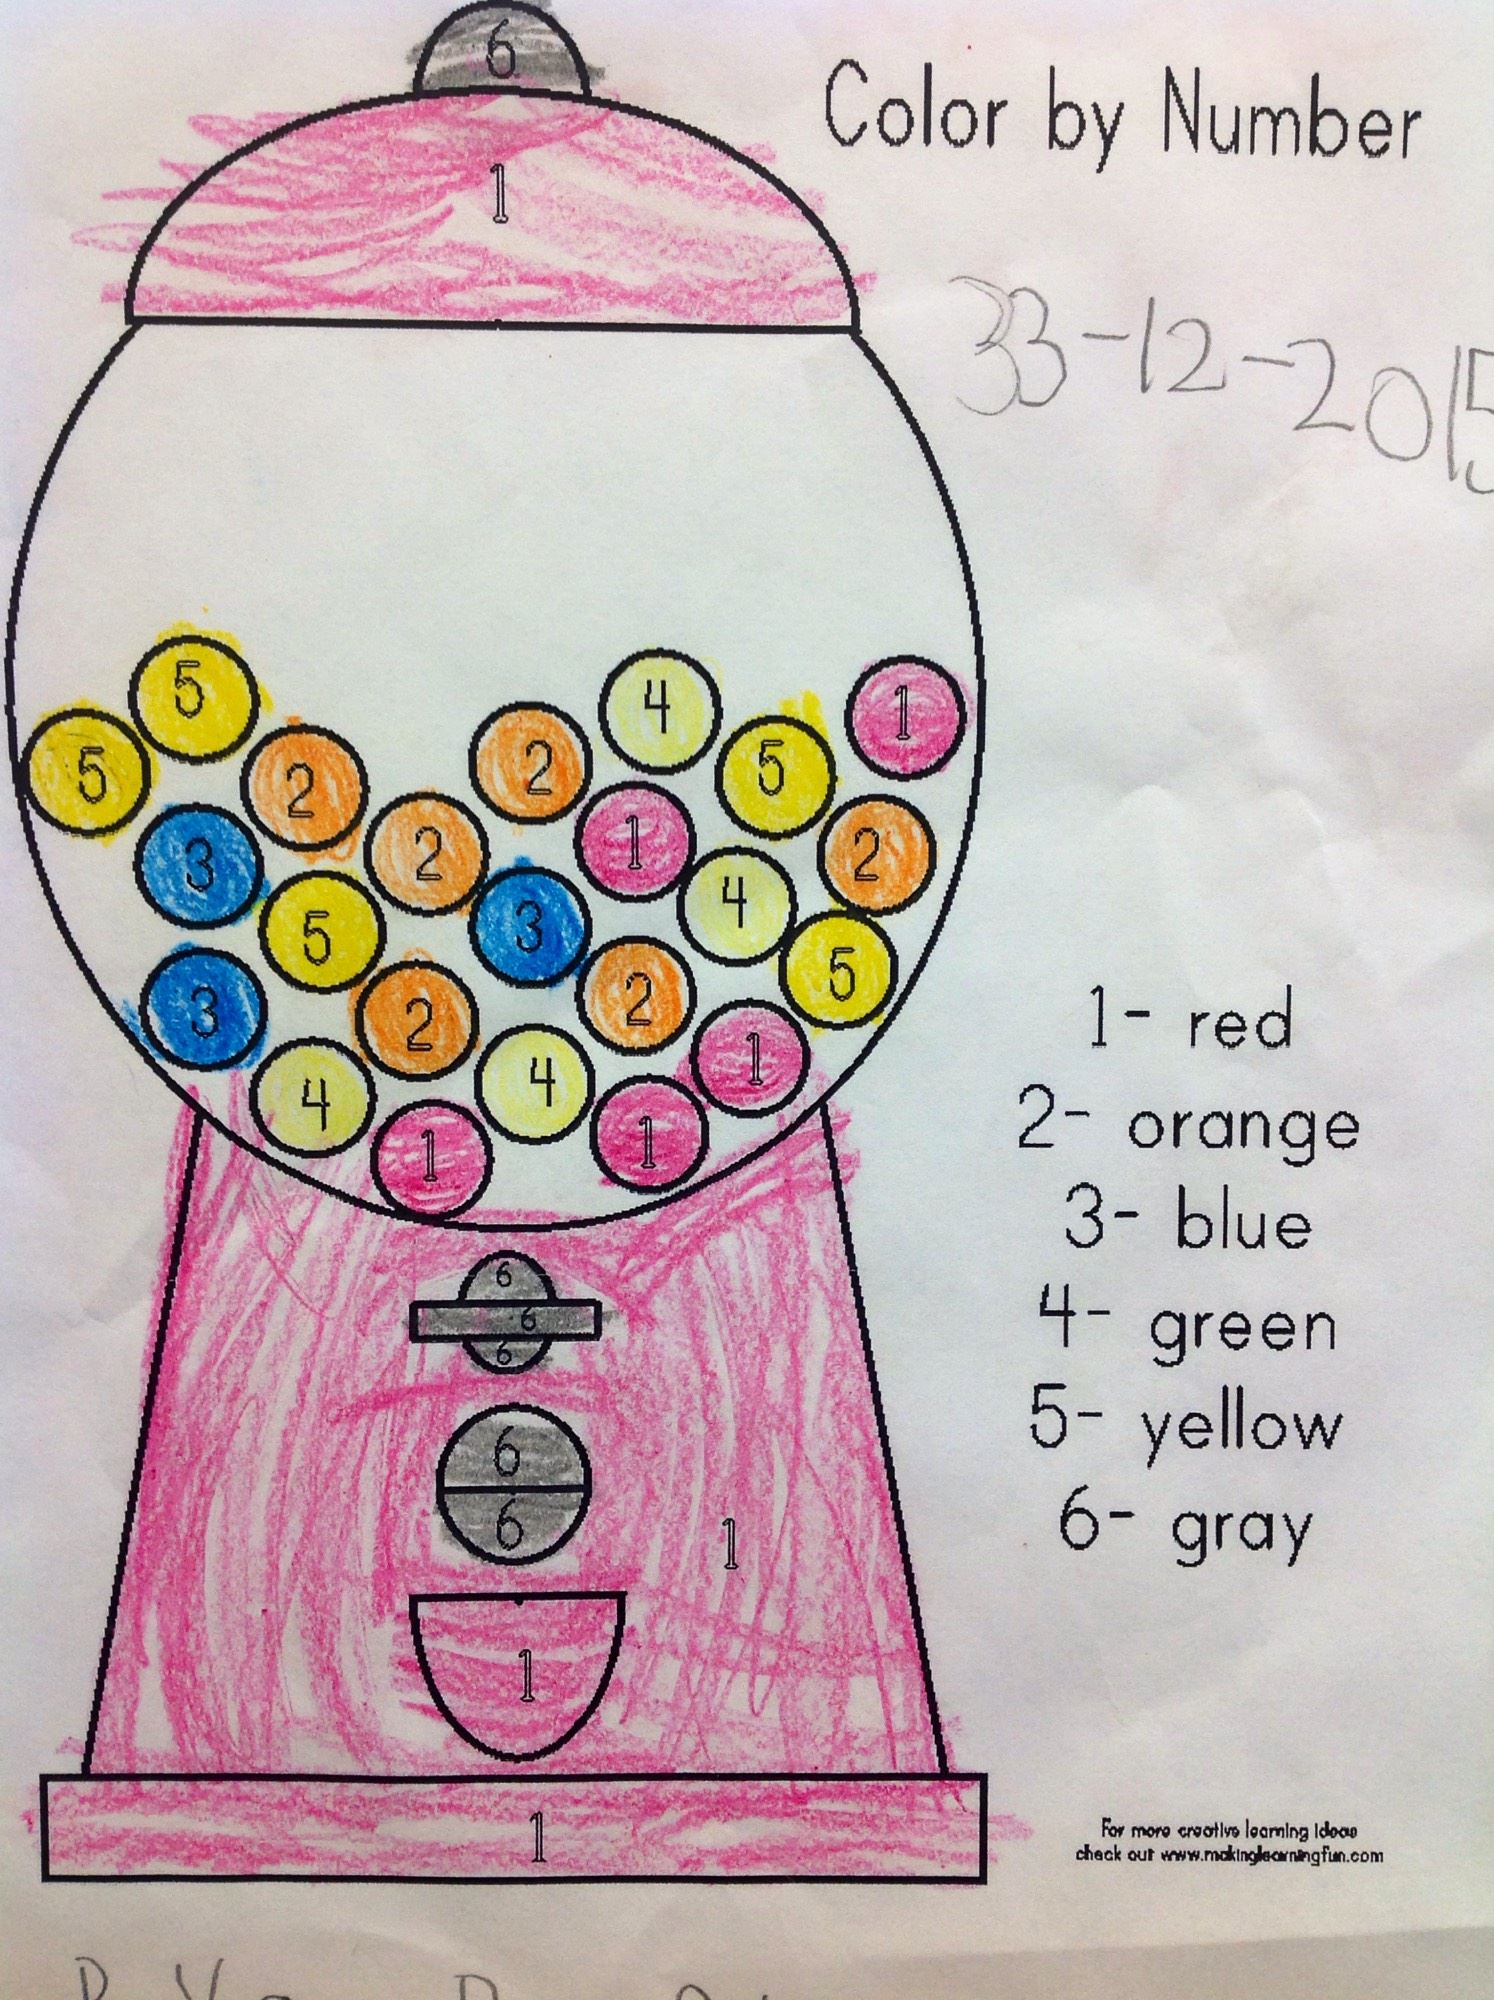 6
Color by Number
1
33-12-2015
5
4
1
5
2
2
5
3
2
1
2
5
3
4
3
2
2
5
4
4
1
1
1
6
6
6
6
6
1
1
1
1- red
2- orange
3- blue
4- green
5- yellow
6- gray
For more creative learning ideas
check out www.makinglearningfun.com